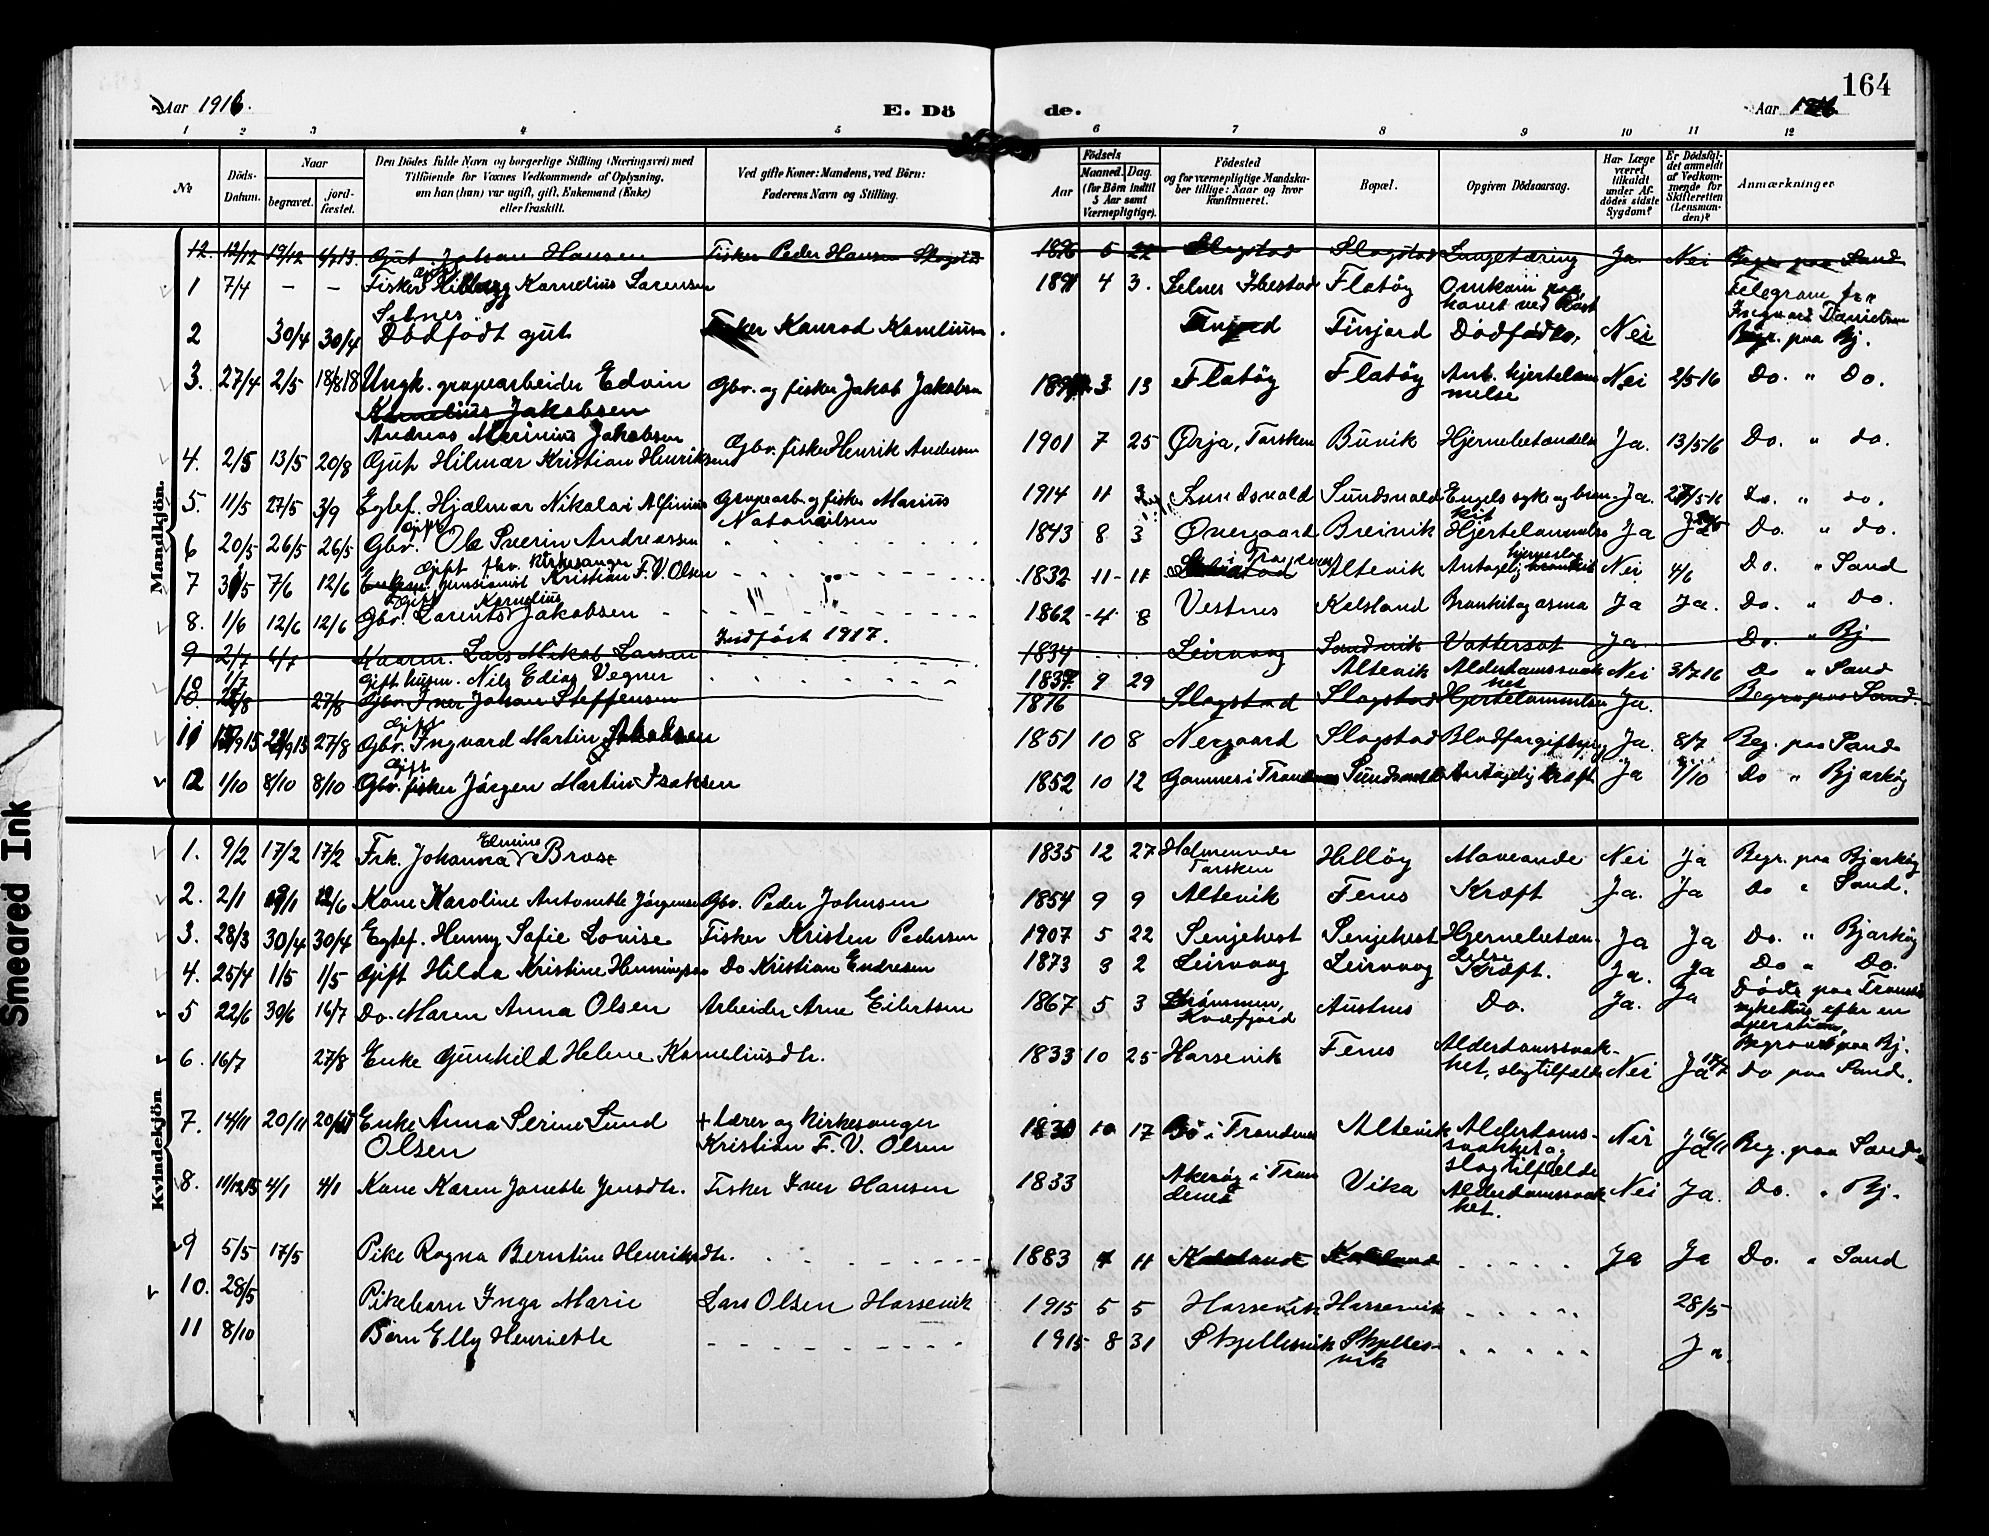 164
Aar 1916.
E. Döde.
Aar 1916
1 2 3 4 5 6 7 8 9 10 11 12
No
Döds-Datum.
Naar
begravet.
jordfæstet.
Den Dödes fulde Navn og borgerlige Stilling (Næringsvei) med Tilföiende for Voxnes Vedkommende af Oplysning, om han (hun) var ugift, gift, Enkemand (Enke) eller fraskilt.
Ved gifte Koner: Mandens, ved Börn: Faderens Navn og Stilling.
Födsels
Aar
Maaned. Dag.
(for Börn indtil 5 Aar samt Værnepligtige).
Födested og for værnepligtige Mandskaber tillige: Naar og hvor konfirmeret.
Bopæl.
Opgiven Dödsaarsag.
Har Læge været tilkaldt under Afdödes sidste Sygdom?
Er Dödsfaldet anmeldt af Vedkommende for Skifteretten (Lensmanden)?
Anmærkninger
Mandkjön.
12. 12/12 19/12 Gut Johan Hansen Fisker Peder Hansen Slagstad 1896 5 22 Slagstad Slagstad Lungetæring Ja Nei Begr. paa Sand
1 7/4 – – Fisker Kornelius Sørensen Selnes 1891 4 3. Selnes Ibestad Flatøy Omkom paa havet ved Røst Telegram fra Ingvard Danielsen
2 30/4 30/4 Dødfødt gut Fisker Konrad Korneliusen Finjord Dødfødt Nei Begr. paa Bj.
3. 27/4 2/5 18/8 18 Ungk. grubearbeider Edvin Kornelius Jakobsen Gbr. og fisker Jakob Jakobsen 3 13 Flatøy Flatøy Ant. hjertelammelse Nei 2/5 16 Do. " Do.
Andreas Merinius Jakobsen
4. 2/5 13/5 20/8 Gut Hilmar Kristian Henriksen Gbr. fisker Henrik Andersen 1901 7 25 Ørja, Torsken Buvik Hjernebetændelse Ja. 13/5 16 Do. " do.
5. 11/5 27/5 3/9 Egtef. Hjalmar Nikolai Alfinius Grubearb. og fisker Marius Natanaelsen 1914 11 3 Sundsvald Sundsvald Engelsk syke og bronkit Ja. 27/5-16 Do. " do.
6 20/5 26/5 26/5 Gift Gbr. Ole Severin Andreassen 1843 8 3 Øvergaard Breivik Hjertelammelse Ja Ja Do " do.
7 31/5 7/6 12/6 Gift fhv. Kirkesanger pensionist Kristian F. V. Olsen 1832 11 11 i Trondenes Altevik Antagelig hjerneslag Nei 4/6 Do. " Sand
8. 1/6 12/6 12/6 Gift Gbr. Lorents Kornelius Jakobsen 1862 4 8 Vestnes Kelsland Bronkit og asma Ja Ja. Do. " Do.
Indført 1917.
9 2/7 4/7 Kaarm. Lars Mikal Larsen 1834 Leirvaag Sandvik Vattersot Ja Do. " Bj
1/7 Gift husm. Nils Edias Vegner 1837 9 29 Altevik Alderdomssvakhet Nei 3/7 16 Do " Sand
10. 27/8 Gbr. Iver Johan Steffensen 1876 Slagstad Slagstad Hjertelammelse Ja. Begr. paa Sand.
11 27/8 Gift Gbr. Ingvard Martin Jakobsen 1851 10 8 Nergaard Slagstad Blodforgiftning Ja. 8/7 Beg. paa Sand
12 1/10 8/10 8/10 Gift Gbr. fisker Jörgen Martin Isaksen 1852 10 12 Gamnes i Trondenes Sundsvald Antagelig kræft Ja 7/10 Do " Bjarköy
Kvindekjön
1. 9/2 17/2 17/2 Frk. Johanna Elmine Brose 1835 12 27 Holmenvær Torsken Helløy Maveonde Nei Ja Begr. paa Bjarköy
2. 2/1 9/1 12/6 Kone Karoline Antonette Jörgensen Gbr. Peder Johnsen 1854 9 9 Altevik Fenes Kræft Ja. Ja Do " Sand.
3. 28/3 30/4 30/4 Egtef. Henny Sofie Lovise Fisker Kristen Pedersen 1907 5 22 Senjehest Senjehest Hjernebetændelse Ja Ja Do. " Bjarköy
4. 25/4 1/5 1/5 Gift Hilda Kristine Henningsen Do Kristian Endresen 1873 3 2 Leirvaag Leirvaag Kræft. Ja. Ja Do " Do.
5 22/6 30/6 16/7 Do. Maren Anna Olsen Arbeider Arne Eilertsen 1867 5 3 Strømmen, Kvæfjord Austnes Do. Ja. Ja Døde paa Tromsø sykehus efter en operation, Begravet paa Bj.
6. 16/7 27/8 Enke Gunhild Helene Korneliusdtr. 1833 10 25 Harsevik Fenes Alderdomssvakhet, slagtilfælde Nei Ja 17/7 Do paa Sand.
7. 14/11 20/11 20/11 Enke Anna Serine Lund Olsen + Lærer og Kirkesanger Kristian F. V. Olsen 1830 10 17 Bø i Trondenes Altevik Alderdomssvakhet og slagtilfelde Nei Ja 16/11 Beg. paa Sand
8. 11/12 15 4/1 4/1 Kone Karen Jonette Jensdtr. Fisker Iver Hansen 1833 Akerøy i Trondenes Vika Alderdomssvakhet. Nei Ja. Do. " Bj.
9 5/5 17/5 Pike Ragna Berntine Henriksdtr. 1883 4 11 Kalsland Kalsland Ja Ja Do. " Sand
10. 28/5 Pikebarn Inga Marie Lars Olsen Harsevik 1915 5 5 Harsevik Harsevik 28/5
11 8/10 Barn Elly Henriette 1915 8 31 Skjellesvik Skjellesvik Ja
Smeared Ink